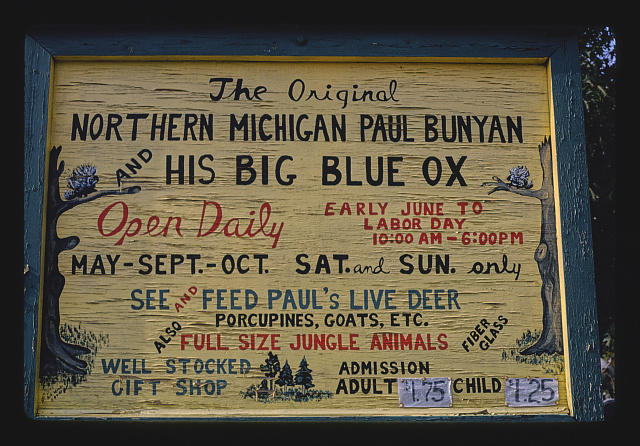 The Original
NORTHERN MICHIGAN PAUL BUNYAN
AND HIS BIG BLUE OX
Open Daily
EARLY JUNE TO
LABOR DAY
10:00 AM-6:00PM
MAY-SEPT.-OCT. SAT. and SUN. only
SEE AND FEED PAUL'S LIVE DEER
PORCUPINES, GOATS, ETC.
ALSO FULL SIZE JUNGLE ANIMALS FIBER GLASS
WELL STOCKED
GIFT SHOP
ADMISSION
ADULT $1.75 CHILD $1.25